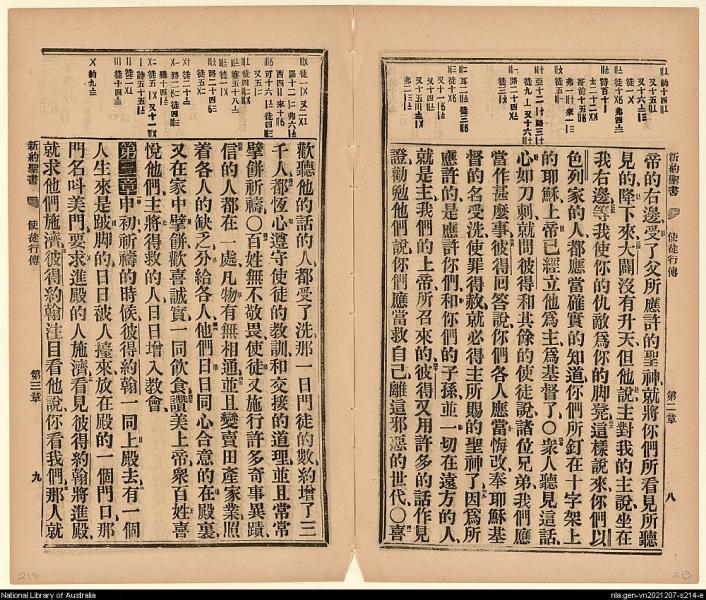 新約聖書
使徒行傳
第二章
八
帝的右邊受了父所應許的聖神就將你們所看見所聽
見的降下來大闢沒有升天但他說主對我的主說坐在
我右邊等我使你的仇敵爲你的脚凳這樣說來你們以
色列家的人都應當確實的知道你們所釘在十字架上
的耶穌上帝已經立他爲主爲基督了〇衆人聽見這話
心如刀刺就問彼得和其餘的使徒說諸位兄弟我們應
當作甚麽事彼得回答說你們各人應當悔改奉耶穌基
督的名受洗使罪得赦就必得主所賜的聖神了因爲所
應許的是應許你們和你們的子孫並一切在遠方的人
就是主我們的上帝所召來的彼得又用許多的話作見
證勸勉他們說你們應當救自己離這邪惡的世代〇喜
歡聽他的話的人都受了洗那一日門徒的數約增了三
千人都恆心遵守使徒的教訓和交接的道理並且常常
擘餅祈禱〇百姓無不敬畏使徒又施行許多奇事異蹟
信的人都在一處凡物有無相通並且變賣田產家業照
着各人的缺乏分給各人他們日日同心合意的在殿裏
又在家中擘餅歡喜誠實一同飲食讚美上帝衆百姓喜
悅他們主將得救的人日日增入教會
第三章申初祈禱的時候彼得約翰一同上殿去有一個
人生來是跛脚的日日被人擡來放在殿的一個門口那
門名叫美門要求進殿的人施濟看見彼得約翰將進殿
就求他們施濟彼得約翰注目看他說你看我們那人就
新約聖書
使徒行傳
第三章
九
215
213
National Library of Australia
nla.gen-vn2021207-s214-e